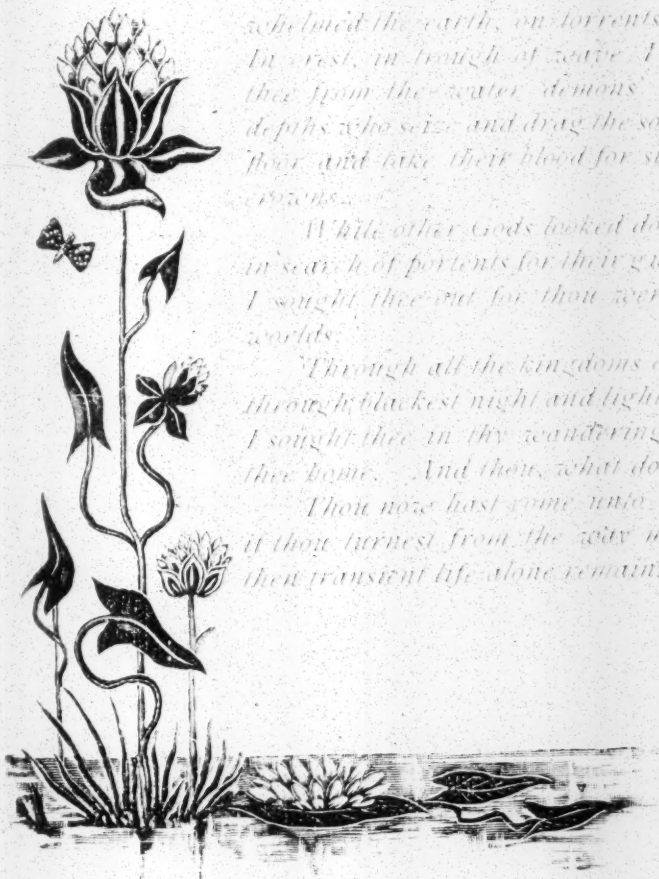 whelmed the earth, on torrents
In crest, in trough of wave I
thee from the water demons
depths who seize and drag the so
floor and take their blood for
While other Gods looked do
in search of portents for their
I sought thee out for thou wer
worlds.
Through all the kingdoms
through blackest night and light
I sought thee in thy wandering
thee home. And thou, what do
Thou now hast come unto
if thou turnest from the way
then transient life alone remain